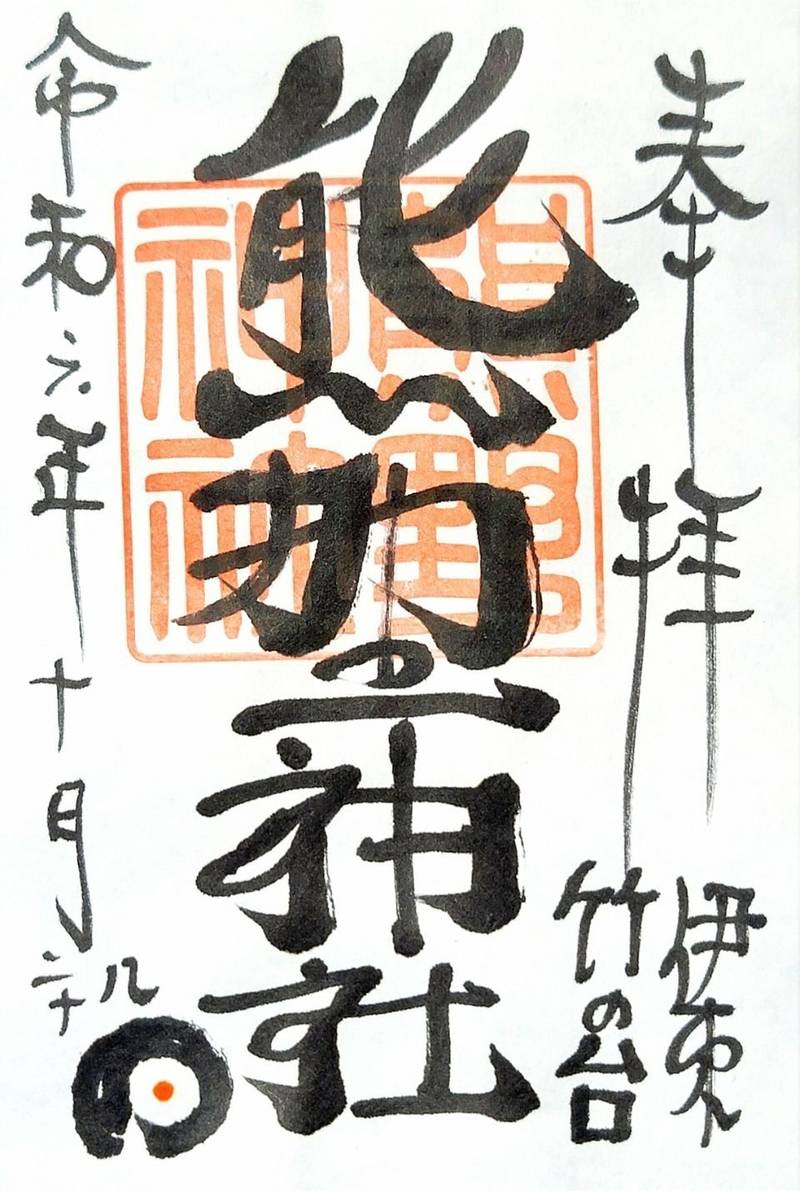 奉拝
伊東
竹の台
熊野神社
熊野
神社
令和六年十月二十